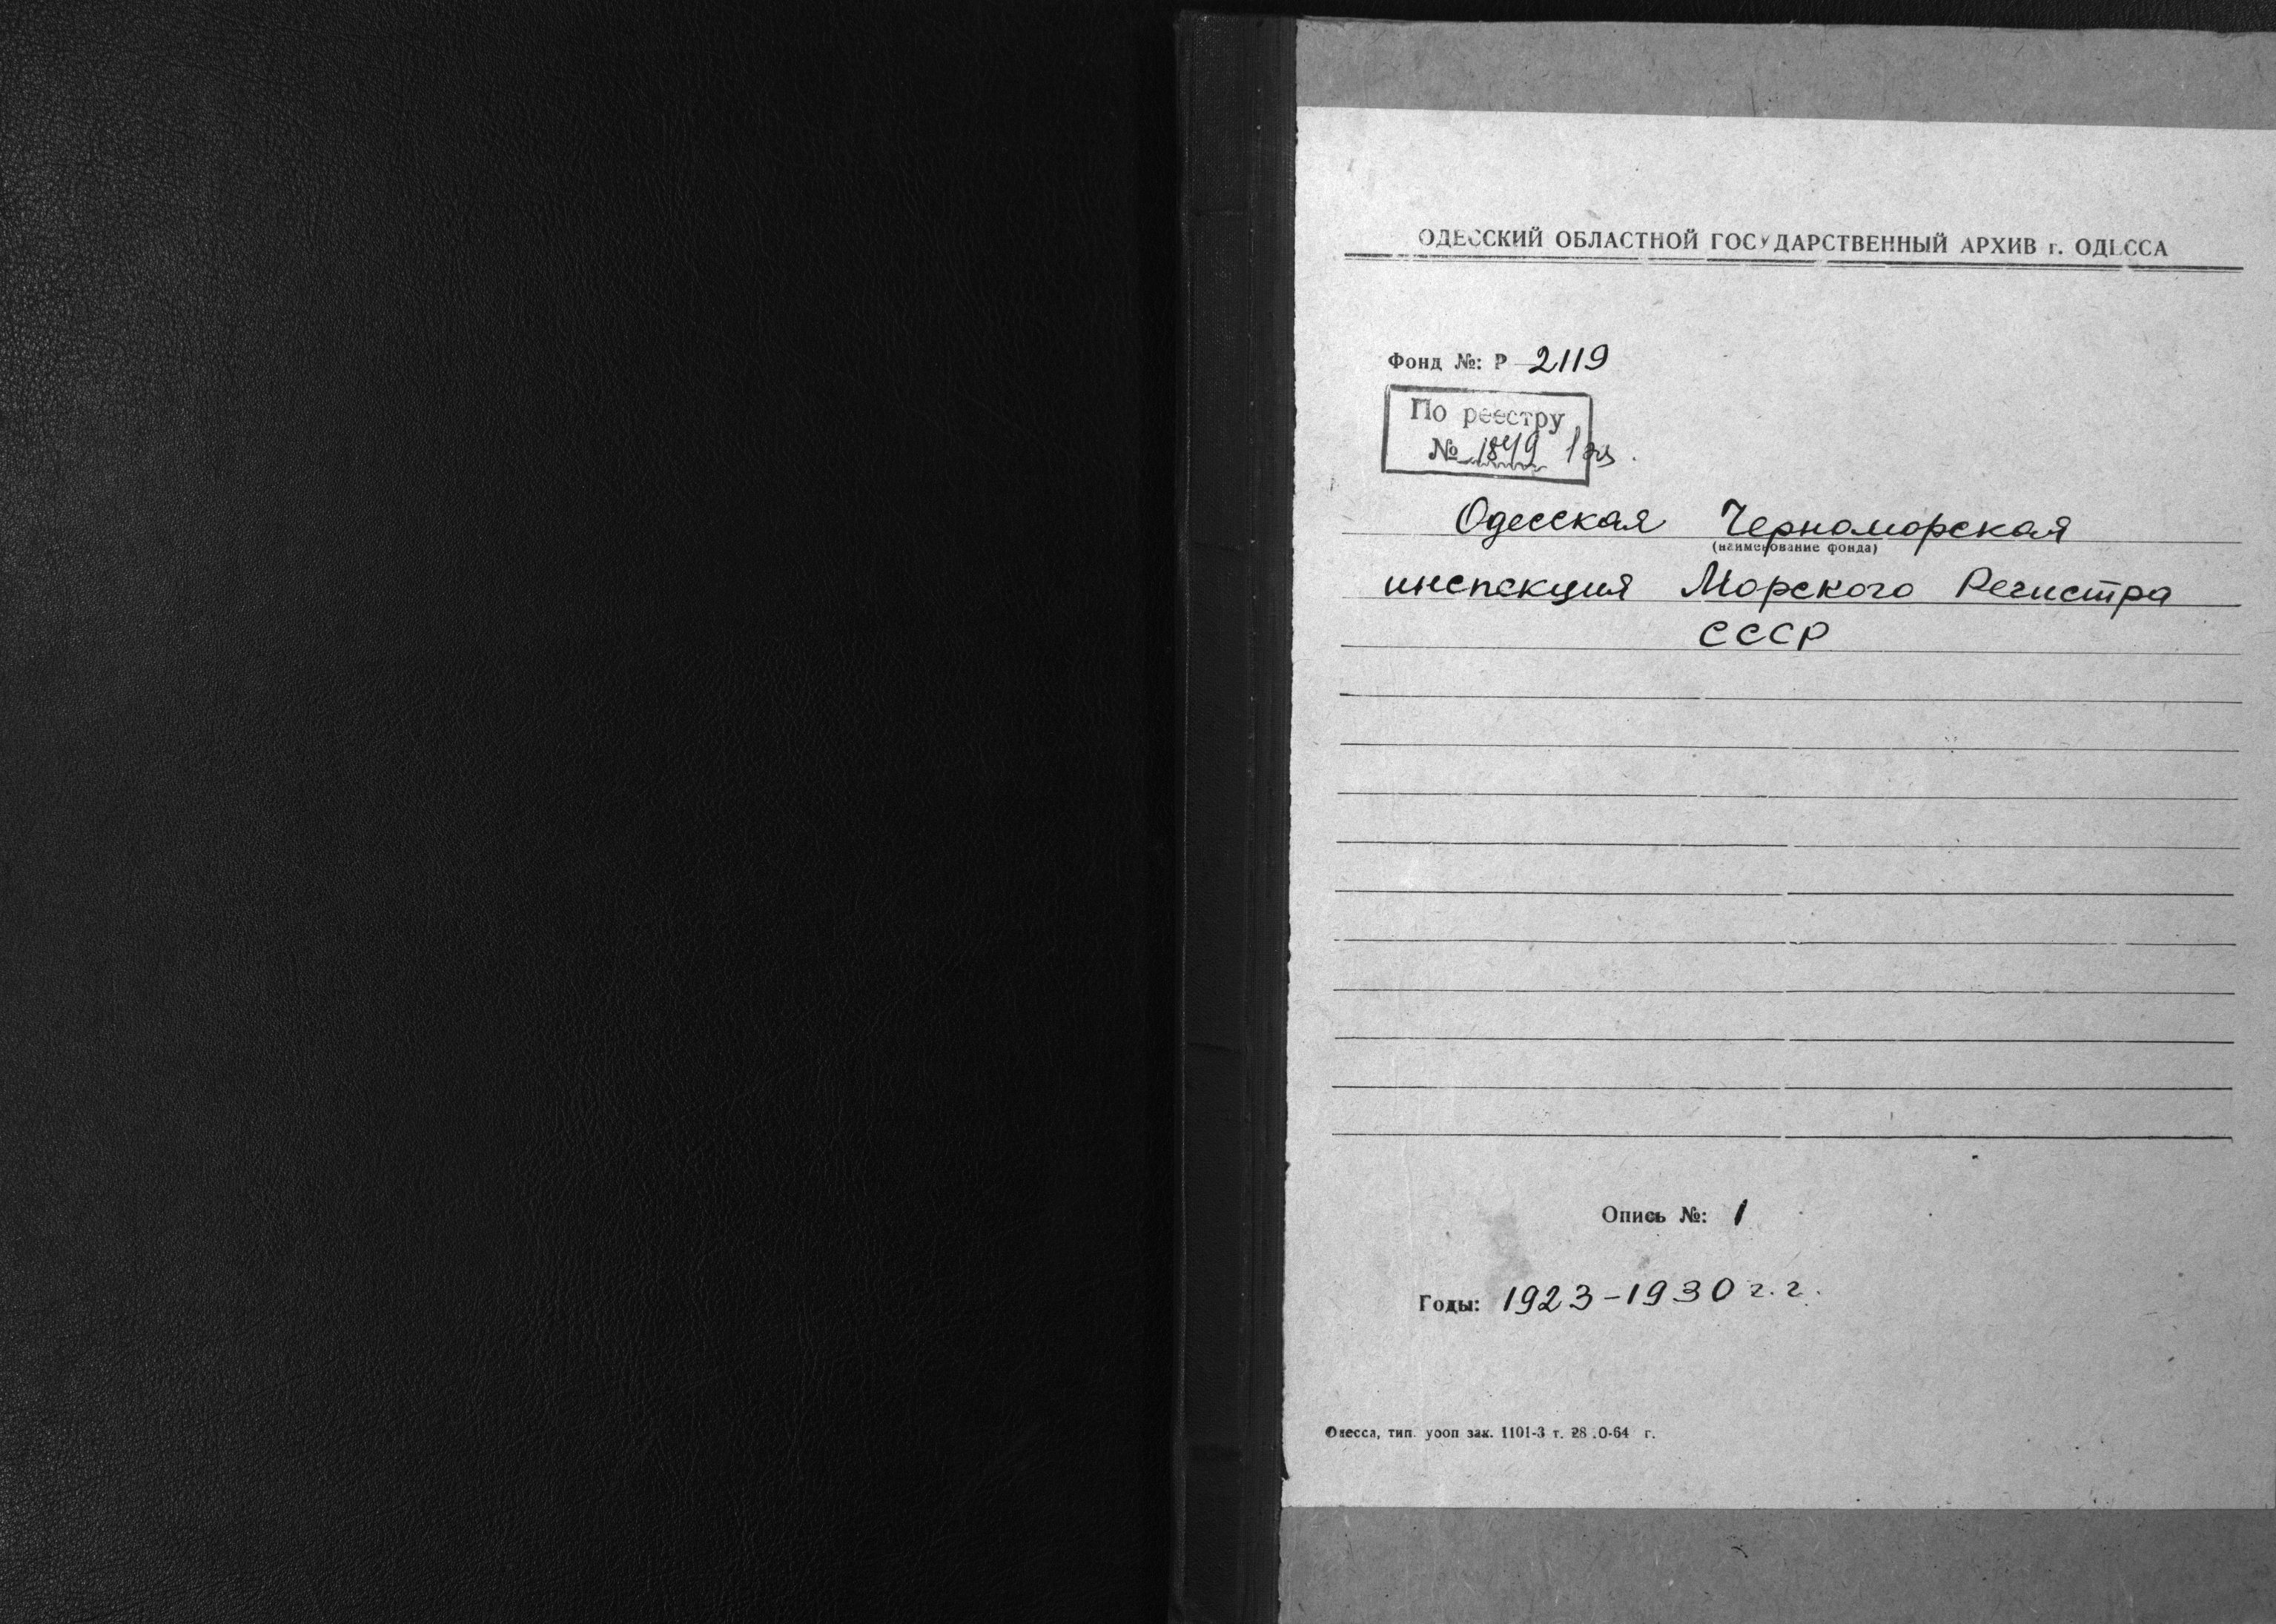 ОДЕССКИЙ ОБЛАСТНОЙ ГОСУДАРСТВЕННЫЙ АРХИВ г. ОДЕССА
Фонд №: Р - 2119
По реестру
№ 1849 1 экз.
Одесская Черноморская
(наименование фонда)
инспекция Морского Регистра
СССР
Опись №: 1
Годы: 1923-1930 г.г.
Одесса, тип. уооп зак. 1101-3 т. 28 .0-64 г.